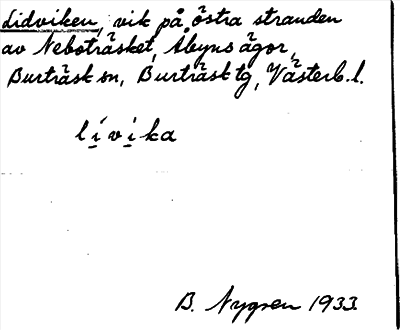 Lidviken, vik på östra stranden
av Neboträsket, Åbyns ägor,
Burträsk sn, Burträsk tg, Västerb. l.
li̱vi̱ka
B. Nygren 1933.